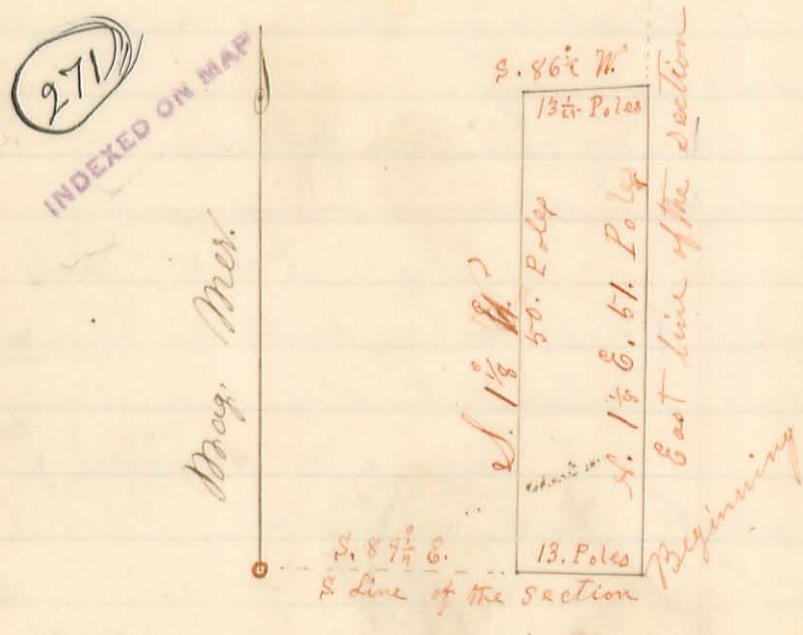 271
INDEXED ON MAP
Mag. Mer.
S. 86½ W.
13 Poles
S. 1⅛° W.
50. Poles
N. 1⅛ E. 51. Poles
East line of the section
Beginning
S. 89 E.
13. Poles
S Line of the section